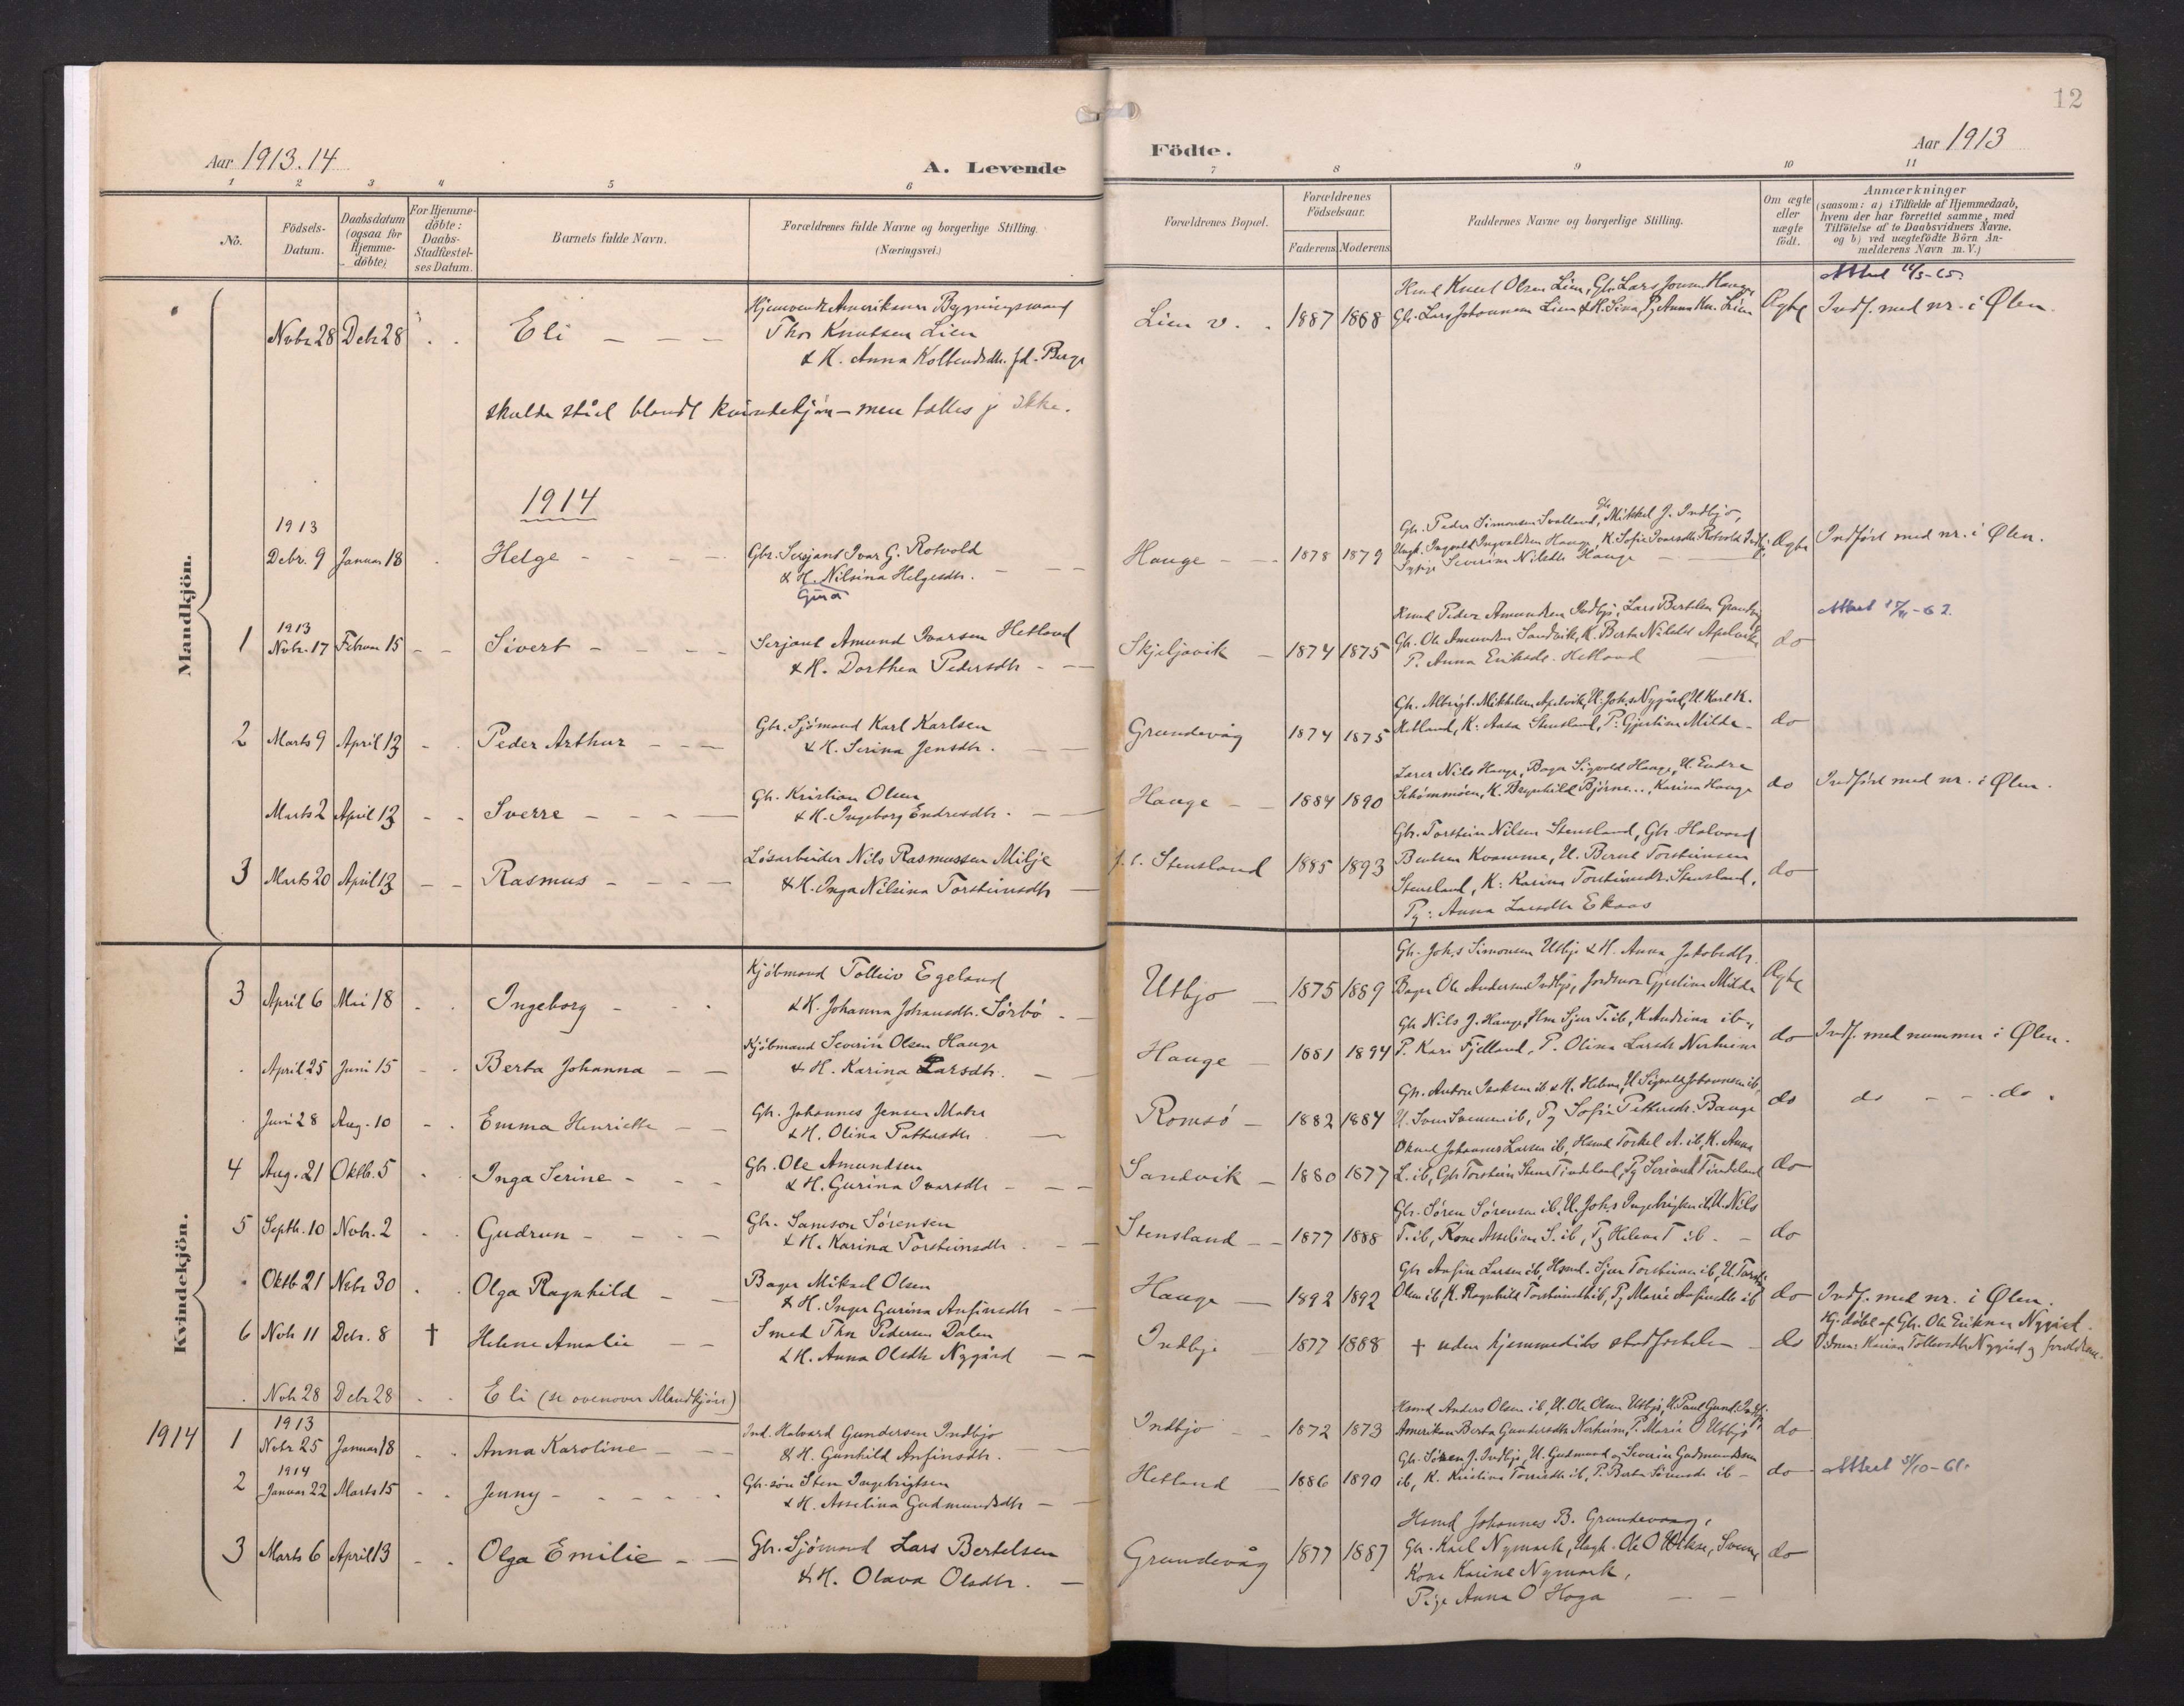 12
Aar 1913.14
A. Levende
Födte.
Aar 1913
1 2 3 4 5 6 7 8 9 10 11
No.
Födsels-
Datum.
Daabsdatum
(ogsaa for
Hjemme-
døbte)
For Hjemme-
döbte:
Daabs-
Stadfæstel-
ses Datum.
Barnets fulde Navn.
Forældrenes fulde Navne og borgerlige Stilling.
(Næringsvei.)
Forældrenes Bopæl.
Forældrenes
Födselsaar.
Faderens Moderens
Faddernes Navne og borgerlige Stilling.
Om ægte
eller
uægte
födt.
Anmærkninger
(saasom: a) i Tilfælde af Hjemmedaab,
hvem der har forrettet samme, med
Tilföielse af to Daabsvidners Navne.
og b) ved uægtefödte Börn An-
melderens Navn m. V.)
Mandkjön.
Novbr 28 Debr 28 Eli
Thor Knutsen Lien
& H. Anna Kolbensdtr. fd. Berge
Lien v. 1887 1868
Hmd Knut Olsen Lien, Gbr. Lars Jonsen Hauge
Gbr. Lars Johannesen Lien & H. Sina, Pg Anna Kn. Lien
Ægte
Indf. med nr. i Ølen.
skulde ståel blandt kvindekjön – men tælles jo ikke.
1914
1913
Debr. 9 Januar 18 Helge
Gbr. Serjant Ivar G. Rotvold
& H. Nilsina Helgesdtr.
Gina
Hauge 1878 1879
Gbr. Peder Simonsen Svalland, Gbr Mikkel J. Indbjo,
Ungk. Ingvald Ingvaldsen Hauge, K. Sofie Ivarsdtr Rotvold
Severine Nilsdtr Hauge
Ægte
Indført med nr. i Ølen.
1 1913
Nvbr. 17 Februar 15 Sivert
Serjant Amund Ivarsen Hetland
& H. Dorthea Pedersdtr
Skjeljavik 1874 1875
Husmd Peder Amundsen Indbjo, Lars Bertelsen
Gbr. Ole Amundsen Sandvik, K. Berta Nilsdtr Apelvik
P. Anna Eriksdtr. Hetland
do
Attest
2 Marts 9 April 13 Peder Arthur
Gbr. Sjömand Karl Karlsen
& H. Serina Jensdtr.
Grundevåg 1874 1875
Gbr. Albrigt Mikkelsen Apelvik, U. Johs Nygård, U. Karl K.
Hetland, K. Aasa Stensland, P. Gjertine Milde
do
Marts 2 April 13 Sverre
Gbr. Kristian Olsen
& H. Ingeborg Endresdtr.
Hauge 1884 1890
Lærer Nils Hauge, Bager Sigvald Hauge, U. Endre
Schömmöen, K. Bergnhild Björne..., Karina Hauge
do
Indført med nr. i Ølen.
3 Marts 20 April 13 Rasmus
Lösarbeider Nils Rasmussen Milje
& H. Inga Nilsina Torsteinsdtr
Stensland 1885 1893
Gbr. Torstein Nilsen Stensland, Gbr. Halvard
Bentsen Kvamme, U. Bernt Torsteinsen
Stensland, K: Karina Torsteinsdtr. Stensland,
Pg: Anna Larsdtr Ekaas
do
Kvindekjön.
3 April 6 Mai 18 Ingeborg
Kjöbmand Tolleiv Egeland
& H. Johanna Johansdtr. Sörbö
Utbjo 1875 1889
Gbr. Johs Simonsen Utbjo & H. Anna Jakobsdtr.
Bager Ole Andersen Indbjo, Jordmor Gjertine Milde
Ægte
April 25 Juni 15 Berta Johanna
Kjöbmand Severin Olsen Hauge
& H. Karina Larsdtr.
Hauge 1881 1894
Gbr Nils J. Hauge, Hm Sjur T. ib, K. Andrina ib.,
P. Kari Fjelland, P. Olina Larsdtr Nerheim
do
Indf. med nummer i Ølen.
Juni 28 Aug. 10 Emma Henriette
Gbr. Johannes Jensen Matre
& H. Olina Pettersdtr
Romsö 1882 1884
Gbr. Anton Isaksen ib & H. Helene, U. Sigvald Johannesen ib,
U. Sven Svensen ib, Pg Sofie Pettersdtr. Bauge
do
do do.
4 Aug. 21 Oktb. 5 Inga Serine
Gbr. Ole Amundsen
& H. Gurina Ivarsdtr
Sandvik 1880 1877
Johannes Larsen ib, Husmd Torkel A. ib, K. Anna
L. ib, Gbr Torstein Stens. Tindeland, Pg Serianna Tindeland
do
5 Septb. 10 Novbr. 2 Gudrun
Gbr. Samson Sörensen
& H. Karina Torsteinsdtr.
Stensland 1877 1888
Gbr. Sören Sörensen ib, U. Johs Ingebrigtsen ib, U. Nils
T. ib, Kone Asseline S. ib, Pg Helene T ib.
do
Oktb 21 Nvbr 30 Olga Ragnhild
Bager Mikael Olsen
& H. Inger Gurina Anfinsdtr
Hauge 1892 1892
Gbr Anfin Larsen ib, Husmd. Sjur Torsteinsen ib, U. Torstein
Olsen ib, K. Ragnhild Torsteinsdtr ib, Pg Marie Anfinsdtr ib
do
Indf. med nr. i Ølen.
6 Nvbr 11 Debr. 8 † Helene Amalie
Smed Thr Pedersen Dalen
& H. Anna Olsdtr Nygård
Indbjo 1877 1888
† uden hjemmedåbs stadfæstelse
do
Hj. döbt af Gbr. Ole Eriksen Nygård.
Vidner: Karina Tollevsdtr Nygård og forældrene.
Nvbr 28 Debr 28 Eli (se ovenover Mandkjön)
1914
1 1913
Nvbr 25 Januar 18 Anna Karoline
Ind. Halvard Gundersen Indbjo
& H. Gunhild Anfinsdtr.
Indbjo 1872 1873
Husmd Anders Olsen ib, U. Ole Olsen Utbjo, U. Paul Gund. Indbjo,
Amerikan. Berta Gundersdtr Nerheim, P. Maria O Utbjo
do
2 1914
Januar 22 Marts 15 Jenny
Gbr. sön Sten Ingebrigtsen
& H. Asselina Gudmundsdtr
Hetland 1886 1890
Gbr. Sören J. Indbjo, U. Gudmund og Severin Gudmundsen
ib, K. Kristine Torrisdtr ib, P. Berta Sivertsdtr ib
do
Attest
3 Marts 6 April 13 Olga Emilie
Gbr. Sjömand Lars Bertelsen
& H. Olava Olsdtr.
Grundevåg 1877 1887
Husmd Johannes B. Grundevaag,
Gbr. Karl Nymark, Ungk. Ole O Utkse, Svein
Kone Karine Nymark,
Pige Anna O Haga
do